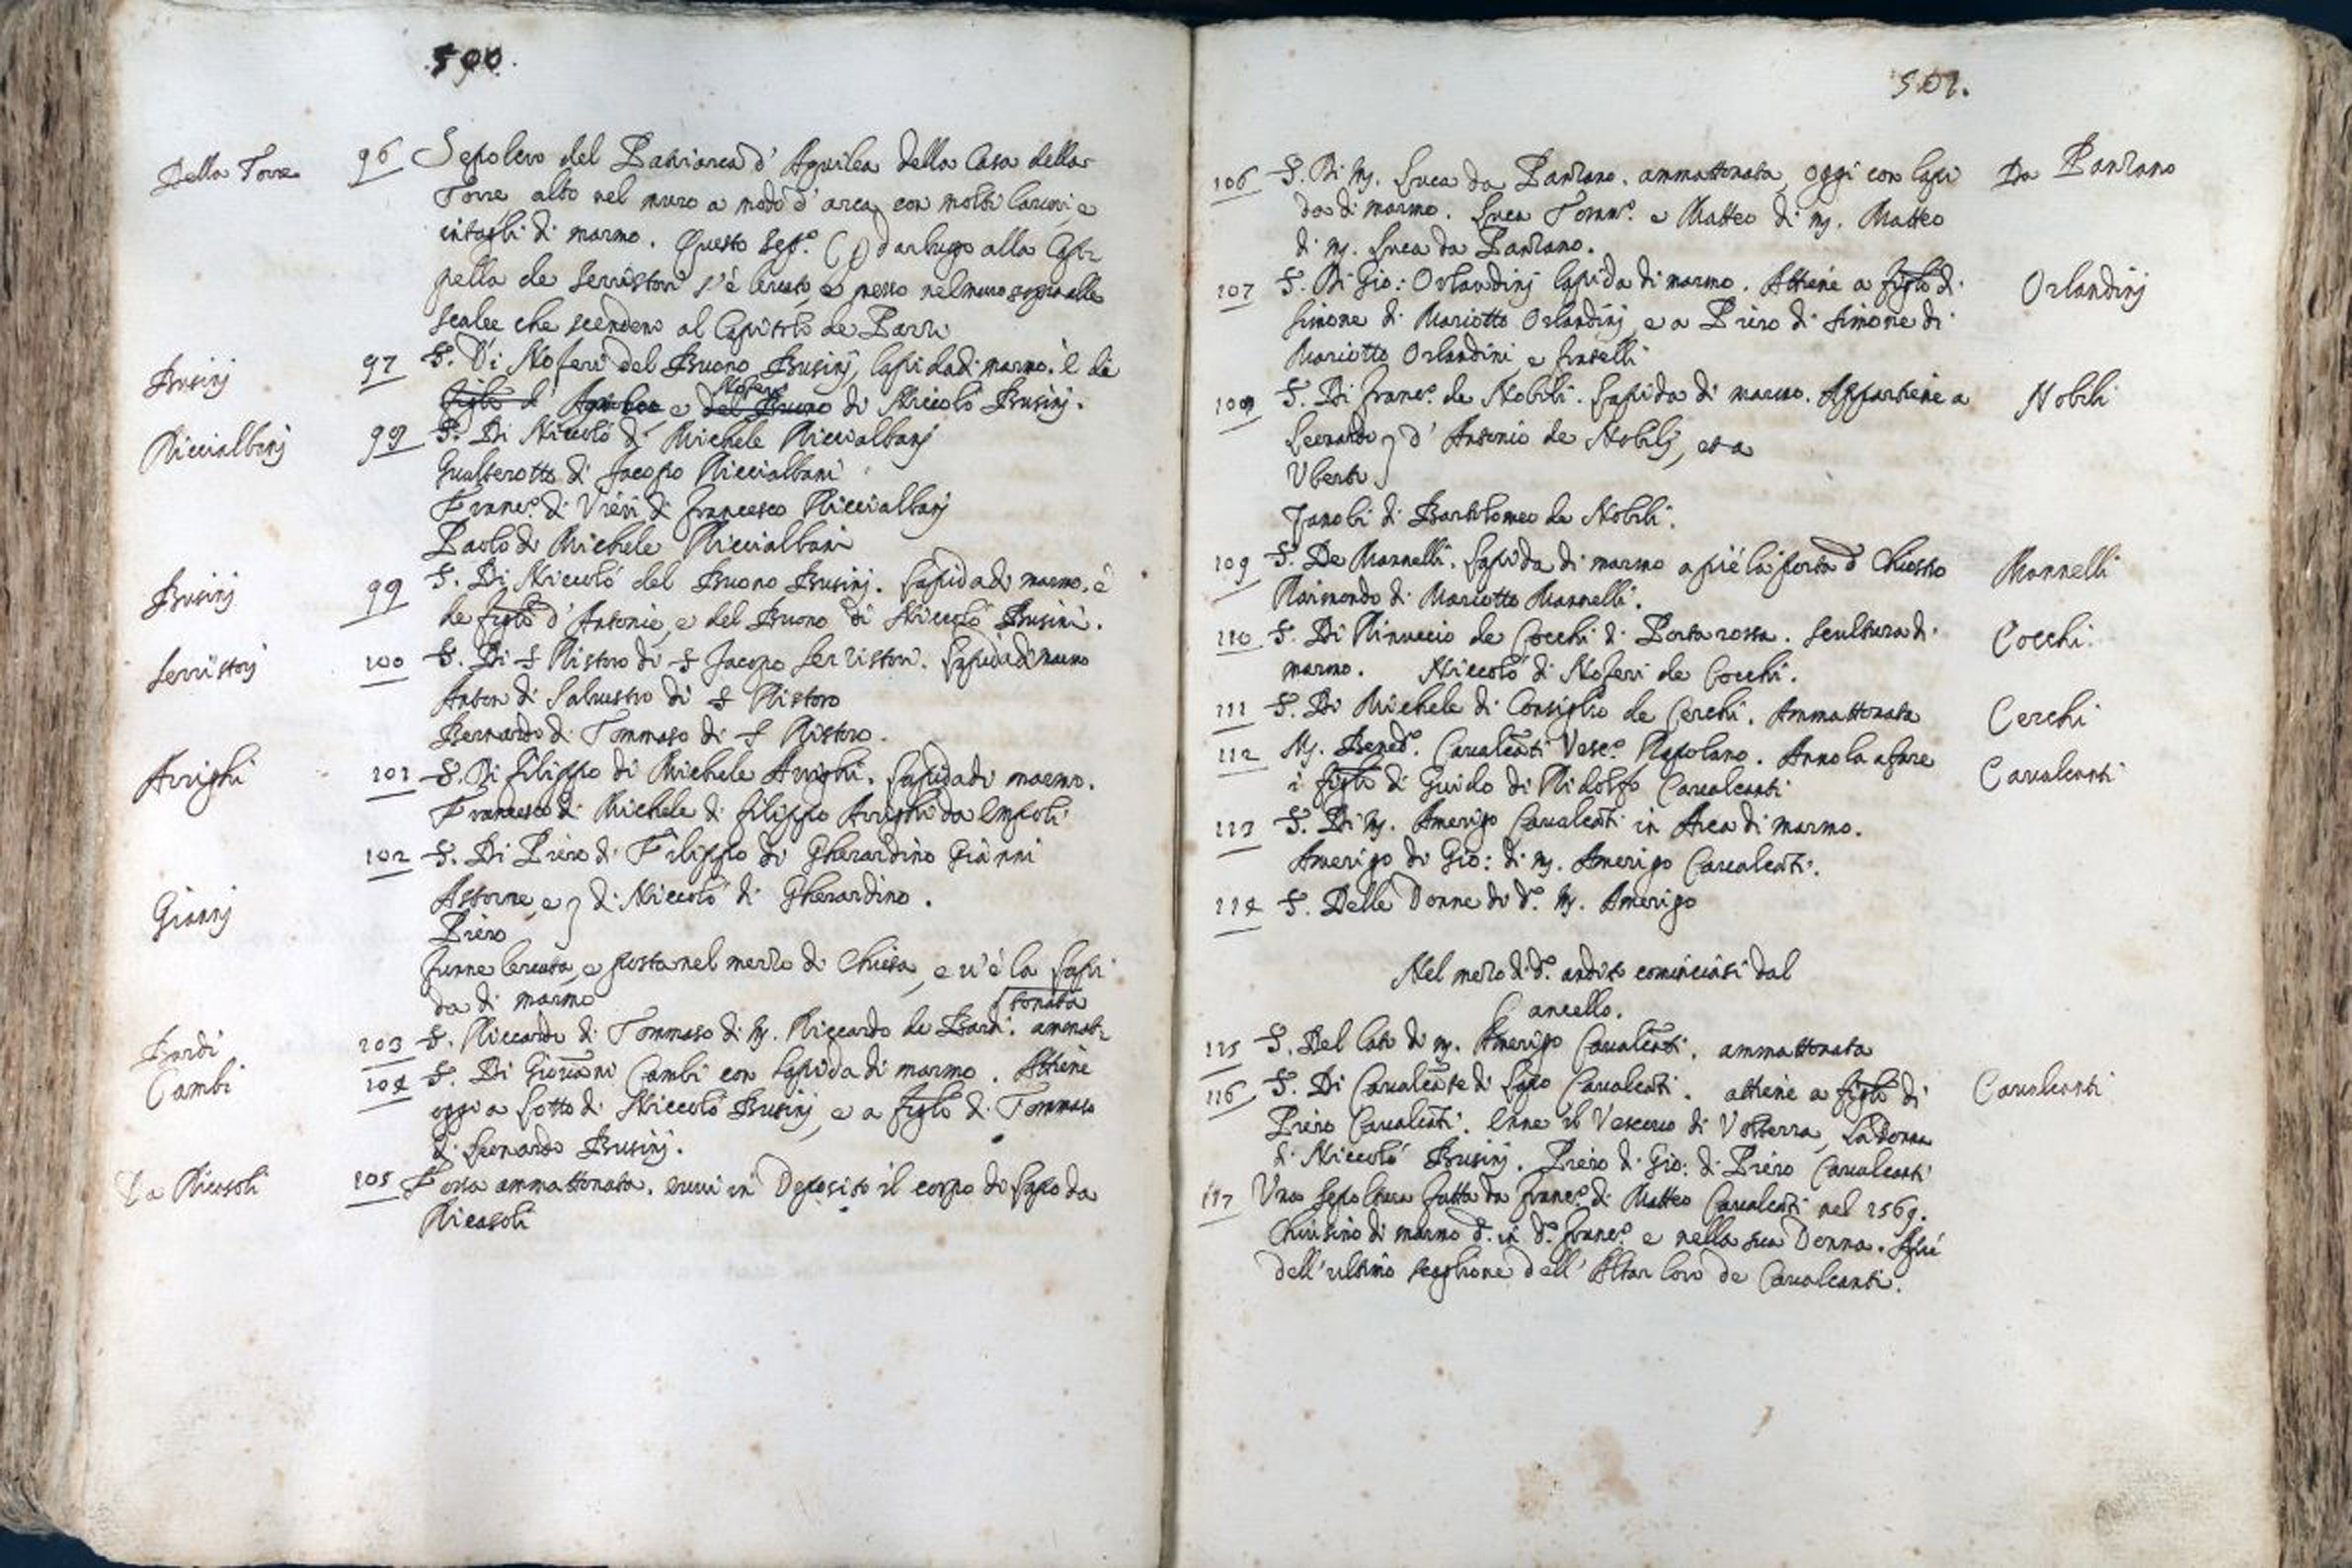 500.
Della Torre 96 Sepolcro del Patriarca d' Aquilea della Casa della
Torre alto nel muro a modo d' arca con molti lavori, e
intagli di marmo. Questo Sepº. () dar luogo alla Cap-
pella de Serristori s'è levato, e messo nel muro sopra alle
scalee che scendono al Capitolo de Pazzi
Businj 97 S. Di Noferi del Buono Businj, lapida di marmo. È de
figli d' e Noferi di Niccolò Businj.
Riccialbanj 98 S. Di Niccolò di Michele Riccialbanj
Gualterotto di Jacopo Riccialbani
Francº. di Vieri di Francesco Riccialbanj
Paolo di Michele Riccialbani
Businj 99 S. Di Niccolò del Buono Businj. Lapida di marmo. è
de figlj d' Antonio, e del Buono di Niccolò Busini.
Serristorj 100 S. Di S Ristoro di S Jacopo Serristori. Lapida di marmo
Anton di Salvestro di S Ristoro
Bernardo di Tommaso di S Ristoro.
Arrighi 101 S. Di Filippo di Michele Arrighi. Lapida di marmo.
Francesco di Michele di Filippo Arrighi da Empoli
102 S. Di Piero di Filippo di Gherardino Gianni
Giannj Astorre, e } di Niccolò di Gherardino.
Piero
Funne levata, e posta nel mezzo di Chiesa, e v'è la lapi
da di marmo
Bardi 103 S. Riccardo di Tommaso di Mj. Riccardo de Bardi. ammat-
tonata
Cambi 104 S. Di Giovāni Cambi con lapida di marmo. Attiene
oggi a Lotto di Niccolò Businj, e a figlj di Tommaso
di Leonardo Businj.
Da Ricasoli 105 Fossa ammattonata. evvi in Deposito il corpo di Lapo da
Ricasoli
501.
106 S. Di Mj. Luca da Panzano. ammattonata, oggi con lapi Da Panzano
da di marmo. Luca Tommº. e Matteo di mj. Matteo
di mj. Luca da Panzano.
107 S. Di Gio: Orlandinj lapida di marmo. Attiene a figlj di Orlandinj
Simone di Mariotto Orlandinj, e a Piero di Simone di
Mariotto Orlandini, e fratelli
108 S. Di Francº. de Nobili. Lapida di marmo. Appartiene a Nobili
Leonardo } d' Antonio de Nobilj, et a
Uberto
Zanobi di Bartolomeo de Nobili.
109 S. De Mannelli. Lapida di marmo a piè la porta d Chiostro Mannelli
Raimondo di Mariotto Mannelli.
110 S. Di Rinuccio de Cocchi di Porta rossa. Scultura di Cocchi.
marmo. Niccolò di Noferi de Cocchi.
111 S. Di Michele di Consiglio de Cerchi. Ammattonata Cerchi
112 Mj. Benedº. Cavalcāti Vescº. Rapolano. Annola a fare Cavalcanti
i figlj di Guido di Ridolfo Cavalcanti
113 S. Di Mj. Amerigo Cavalcāti in Arca di marmo.
Amerigo di Gio: di mj. Amerigo Cavalcāti.
114 S. Delle Donne di dº. Mj. Amerigo
Nel mezo di dº. andito cominciasi dal
Cancello.
115 S. Del lato di mj. Amerigo Cavalcāti. ammattonata
116 S. Di Cavalcāte di Lapo Cavalcāti. attiene a figlj di Cavalcanti
Piero Cavalcāti. Enne il Vescovo di Volterra, La Donna
di Niccolò Businj. Piero di Gio: di Piero Cavalcanti
117 Una Sepoltura fatta da Francº. di Matteo Cavalcāti nel 1569.
Chiusino di marmo d. in dº. Francº. e nella sua Donna. Appiè
dell'ultimo scaglione dell' Altar loro de Cavalcanti.